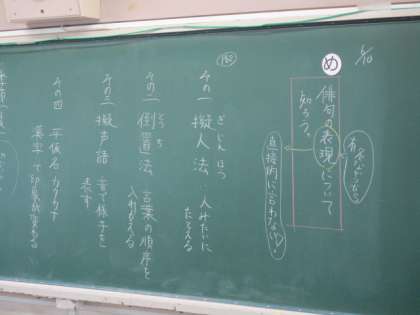 5/10
め
俳句の表現について
知ろう。
直接的に言わない。
その一 擬人法…人みたいに
たとえる
ぎじんほう
その二 倒置法 言葉の順序を
入れかえる
とうち
その三 擬声語 音で様子を
表す
その四 平仮名 カタカナ
漢字 で印象が変わる